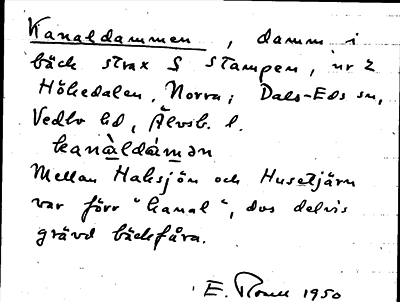 Kanaldammen, damm i
bäck strax S Stampen, nr 2
Höhedalen, Norra; Dals-Eds sn,
Vedbo hd, Älvsb. l.
kanàldámən
Mellan Haksjön och Husetjärn
var förr "kanal", dvs delvis
grävd bäckfåra.
E. 1950